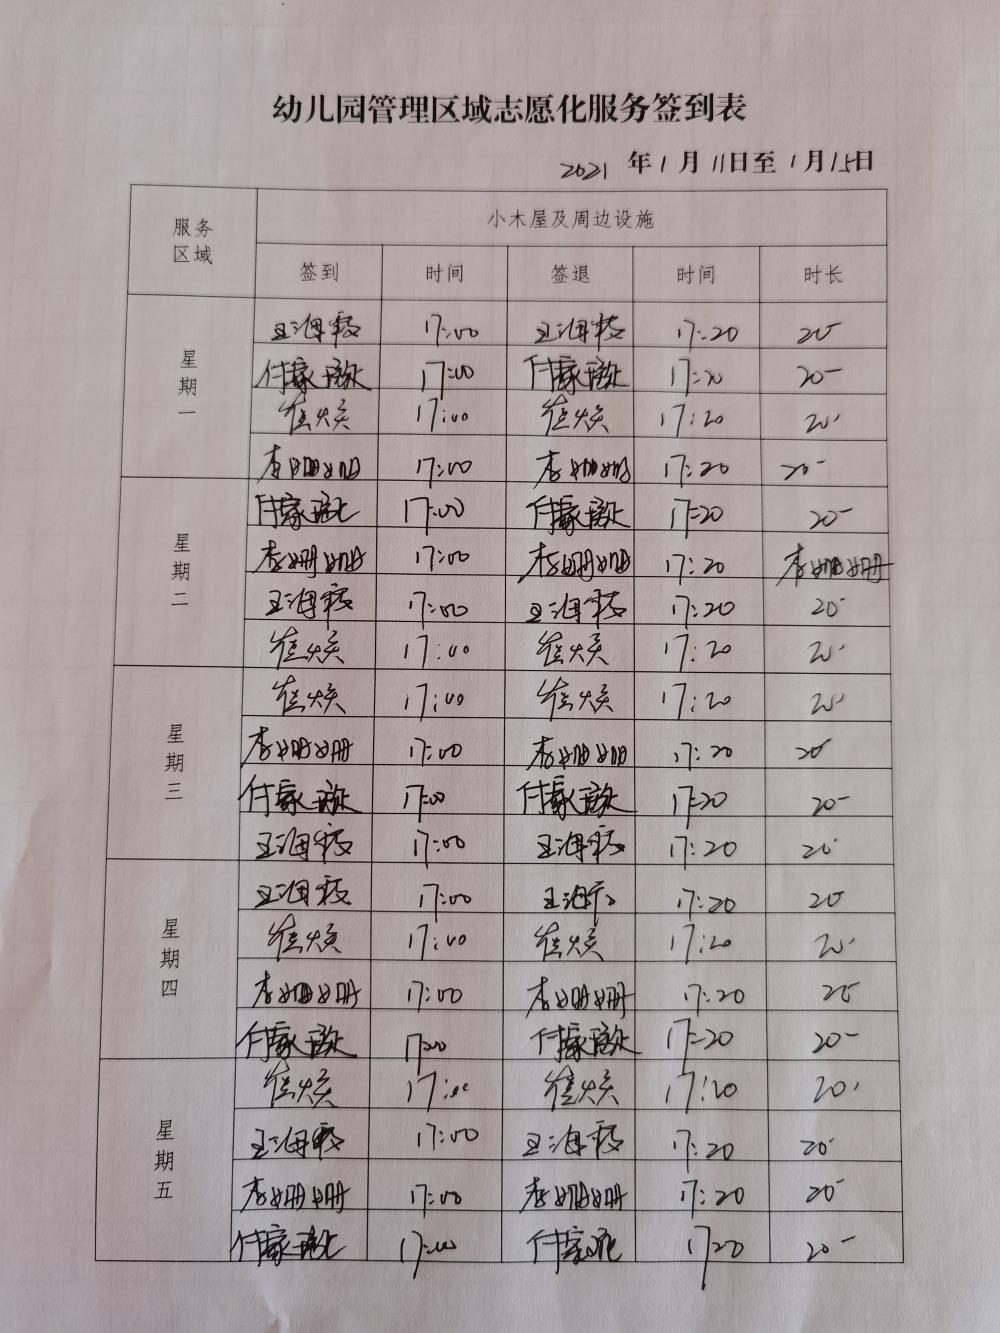 幼儿园管理区域志愿化服务签到表
2021 年 1 月 11日至 1 月 15日
服务区域 小木屋及周边设施
签到 时间 签退 时间 时长
星期一
王海 17:00 王海 17:20 20
付家 17:00 付家 17:20 20
崔焕 17:00 崔焕 17:20 20
李姗姗 17:00 李姗姗 17:20 20
星期二
付家 17:00 付家 17:20 20
李姗姗 17:00 李姗姗 17:20 李姗姗
王海 17:00 王海 17:20 20
崔焕 17:00 崔焕 17:20 20
星期三
崔焕 17:00 崔焕 17:20 20
李姗姗 17:00 李姗姗 17:20 20
付家 17:00 付家 17:20 20
王海 17:00 王海 17:20 20
星期四
王海 17:00 王海 17:20 20
崔焕 17:00 崔焕 17:20 20
李姗姗 17:00 李姗姗 17:20 20
付家 17:00 付家 17:20 20
星期五
崔焕 17:00 崔焕 17:20 20
王海 17:00 王海 17:20 20
李姗姗 17:00 李姗姗 17:20 20
付家 17:00 付家 1720 20